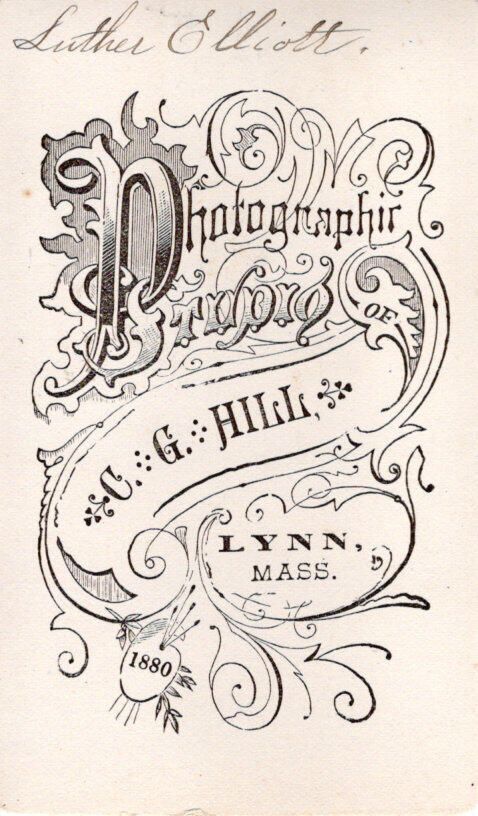 Luther Elliott.
Photographic
Studio
OF
C. G. HILL,
LYNN,
MASS.
1880